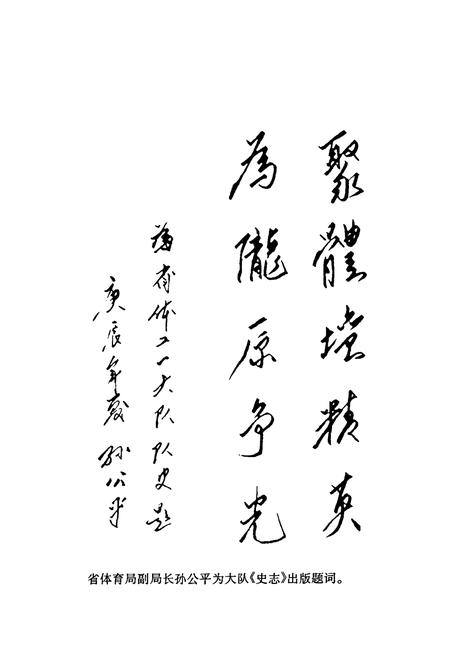 聚體壇精英
為隴原争光
为省体工一大队队史题
庚辰年夏 孙公平
省体育局副局长孙公平为大队《史志》出版题词。